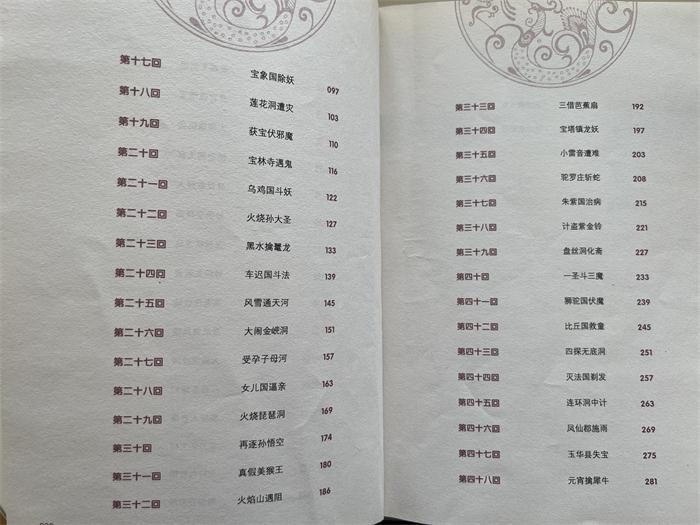 第十七回 宝象国除妖 097
第十八回 莲花洞遭灾 103
第十九回 获宝伏邪魔 110
第二十回 宝林寺遇鬼 116
第二十一回 乌鸡国斗妖 122
第二十二回 火烧孙大圣 127
第二十三回 黑水擒鼍龙 133
第二十四回 车迟国斗法 139
第二十五回 风雪通天河 145
第二十六回 大闹金㟮洞 151
第二十七回 受孕子母河 157
第二十八回 女儿国逼亲 163
第二十九回 火烧琵琶洞 169
第三十回 再逐孙悟空 174
第三十一回 真假美猴王 180
第三十二回 火焰山遇阻 186
第三十三回 三借芭蕉扇 192
第三十四回 宝塔镇龙妖 197
第三十五回 小雷音遭难 203
第三十六回 驼罗庄斩蛇 208
第三十七回 朱紫国治病 215
第三十八回 计盗紫金铃 221
第三十九回 盘丝洞化斋 227
第四十回 一圣斗三魔 233
第四十一回 狮驼国伏魔 239
第四十二回 比丘国救童 245
第四十三回 四探无底洞 251
第四十四回 灭法国剃发 257
第四十五回 连环洞中计 263
第四十六回 凤仙郡施雨 269
第四十七回 玉华县失宝 275
第四十八回 元宵擒犀牛 281